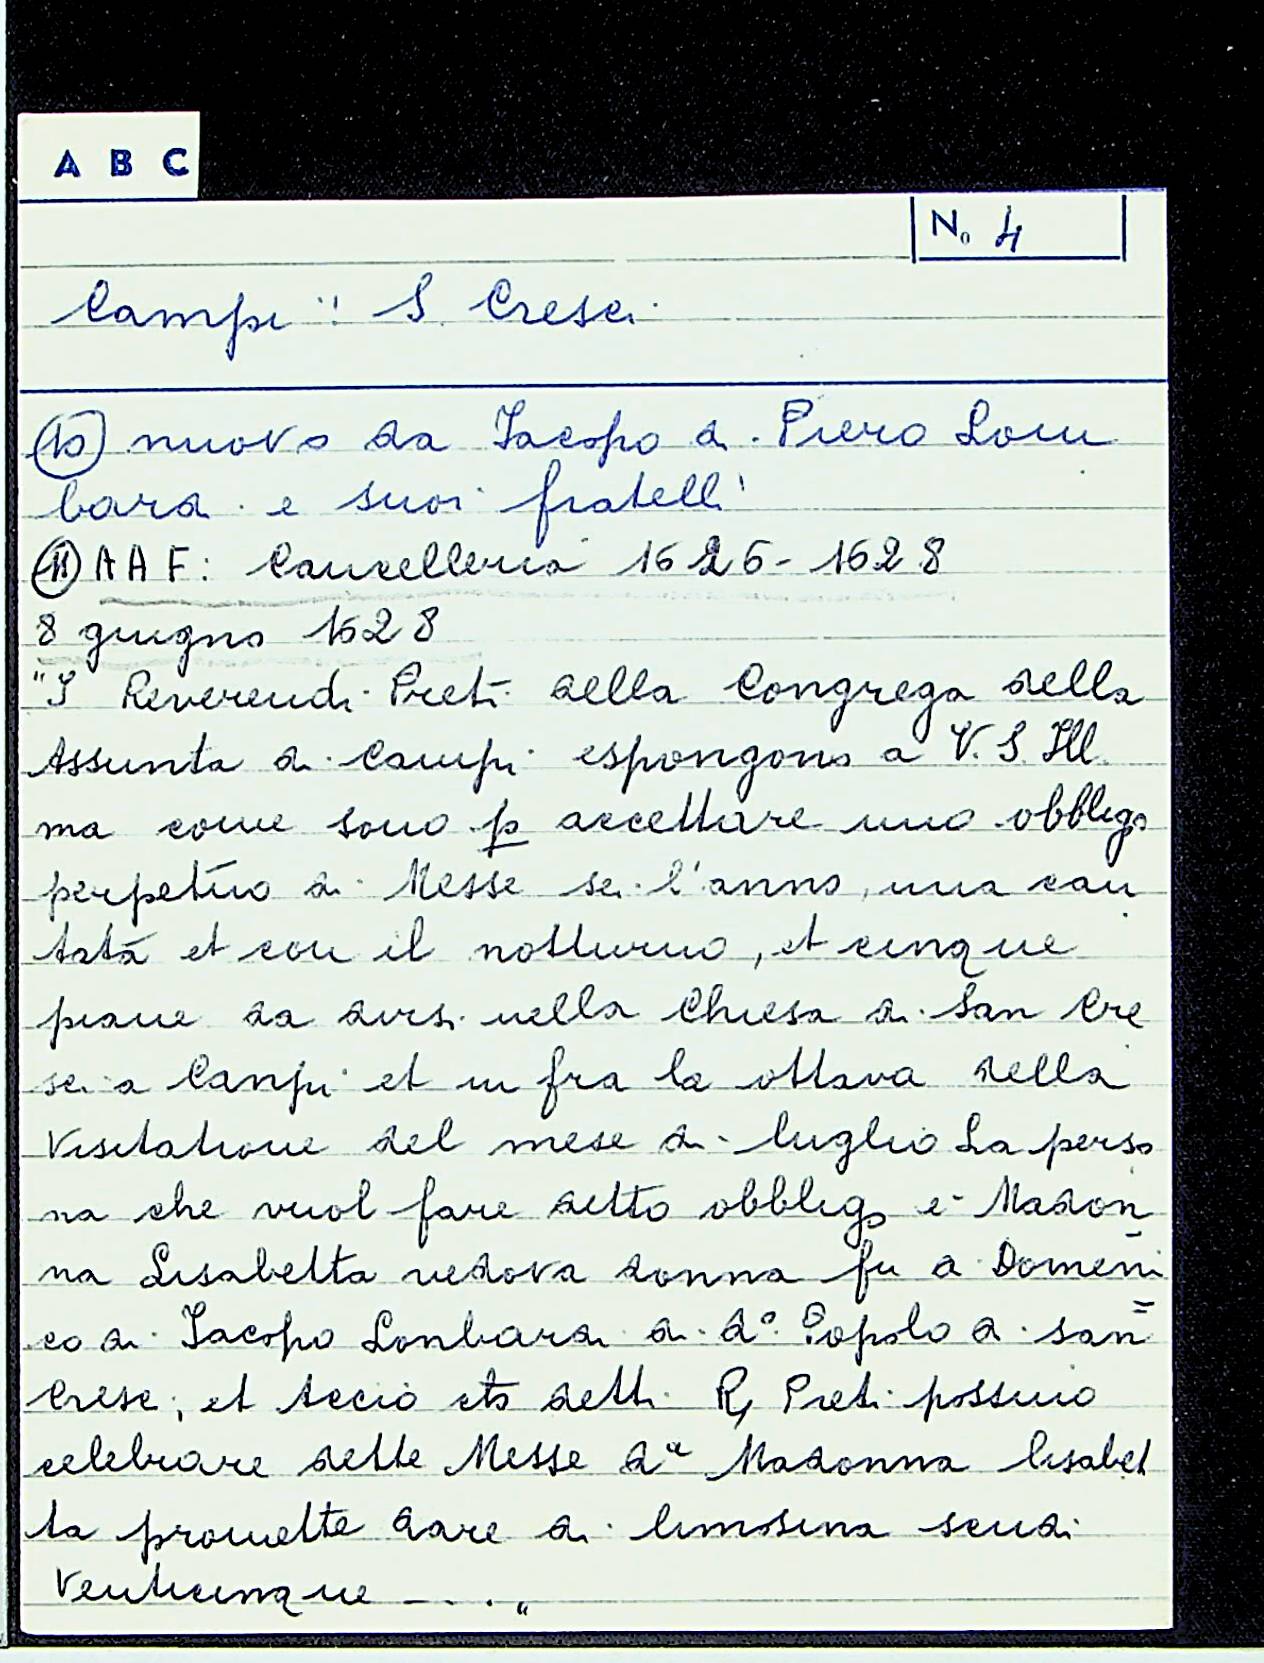 A B C
No 4
Campi: S. Cresci
(10) nuovo da Iacopo di Piero Lom
bardi e suoi fratelli
(11) A A F: Cancelleria 1626-1628
8 giugno 1628
"I Reverendi Preti della Congrega della
Assunta di Campi espongono a V. S. Ill.
ma come sono p accettare uno obbligo
perpetuo di Messe sei l'anno, una can
tata et con il notturno, et cinque
piane da dirsi nella Chiesa di San Cre
sci a Canpi et in fra la ottava della
Visitatione del mese di luglio La perso
na che vuol fare detto obbligo è Madon
na Lisabetta vedova donna fu di Domeni
co di Iacopo Lonbardi di do Popolo di san
Cresci, et acciò detti R, Preti possino
celebrare dette Messe da Madonna lisabet
ta promette dare di limosina scudi
Venticinque - . . . "